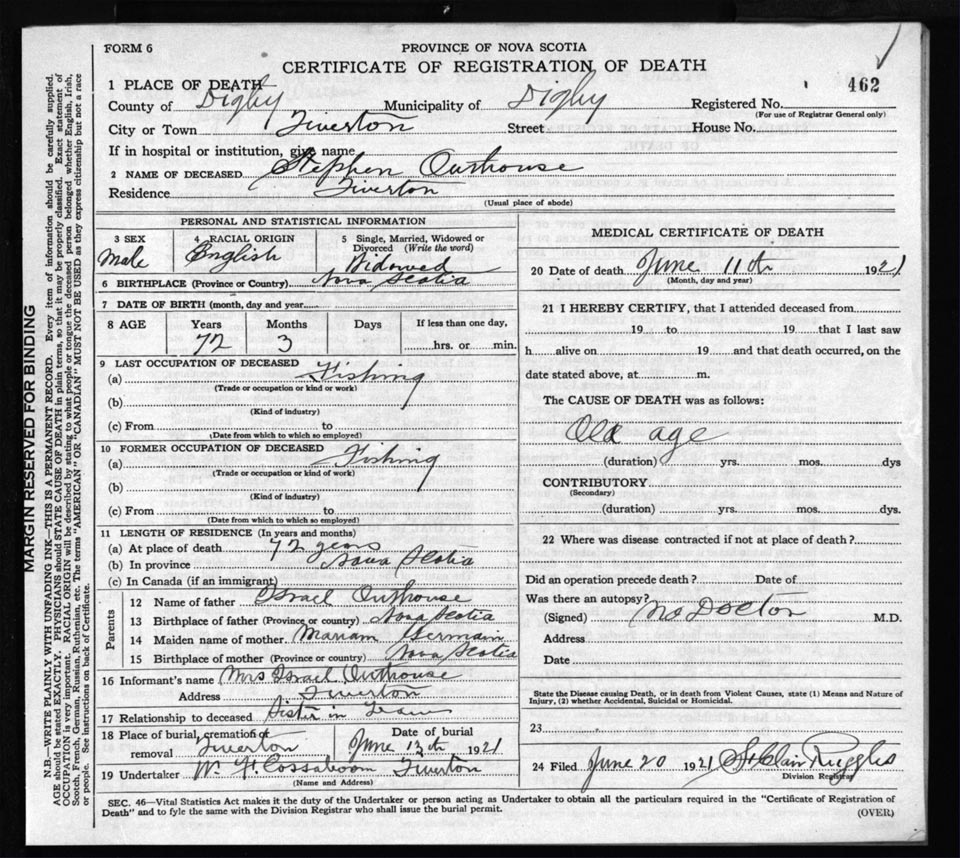 FORM 6
PROVINCE OF NOVA SCOTIA
CERTIFICATE OF REGISTRATION OF DEATH
462
1 PLACE OF DEATH
County of Digby Municipality of Digby Registered No.
(For use of Registrar General only)
City or Town Tiverton Street House No.
If in hospital or institution, give name
2 NAME OF DECEASED Stephen Outhouse
Residence Tiverton
(Usual place of abode)
PERSONAL AND STATISTICAL INFORMATION
3 SEX 4 RACIAL ORIGIN 5 Single, Married, Widowed or Divorced (Write the word)
Male English Widowed
6 BIRTHPLACE (Province or Country) Nova Scotia
7 DATE OF BIRTH (month, day and year)
8 AGE Years Months Days If less than one day,
72 3 hrs. or min.
9 LAST OCCUPATION OF DECEASED
(a) Fishing
(Trade or occupation or kind or work)
(b)
(Kind of industry)
(c) From to
(Date from which to which so employed)
10 FORMER OCCUPATION OF DECEASED
(a) Fishing
(Trade or occupation or kind of work)
(b)
(Kind of industry)
(c) From to
(Date from which to which so employed)
11 LENGTH OF RESIDENCE (In years and months)
(a) At place of death 72 years
(b) In province Nova Scotia
(c) In Canada (if an immigrant)
Parents
12 Name of father Israel Outhouse
13 Birthplace of father (Province or country) Nova Scotia
14 Maiden name of mother Mariam Germain
15 Birthplace of mother (Province or country) Nova Scotia
16 Informant's name Mrs Israel Outhouse
Address Tiverton
17 Relationship to deceased Sister in
18 Place of burial, cremation or removal Tiverton Date of burial June 13th 1921
19 Undertaker W. H. Cossaboom Tiverton
(Name and Address)
MEDICAL CERTIFICATE OF DEATH
20 Date of death June 11th 1921
(Month, day and year)
21 I HEREBY CERTIFY, that I attended deceased from
19 to 19 that I last saw
h alive on 19 and that death occurred, on the
date stated above, at m.
The CAUSE OF DEATH was as follows:
Old age
(duration) yrs. mos. dys
CONTRIBUTORY
(Secondary)
(duration) yrs. mos. dys.
22 Where was disease contracted if not at place of death?
Did an operation precede death? Date of
Was there an autopsy?
(Signed) No Doctor M.D.
Address
Date
State the Disease causing Death, or in death from Violent Causes, state (1) Means and Nature of
Injury, (2) whether Accidental, Suicidal or Homicidal.
23
24 Filed June 20 1921 St Clair Ruggles
Division Registrar
SEC. 46—Vital Statistics Act makes it the duty of the Undertaker or person acting as Undertaker to obtain all the particulars required in the "Certificate of Registration of
Death" and to fyle the same with the Division Registrar who shall issue the burial permit.
(OVER)
MARGIN RESERVED FOR BINDING
N.B.—WRITE PLAINLY WITH UNFADING INK—THIS IS A PERMANENT RECORD. Every item of information should be carefully supplied.
AGE should be stated EXACTLY. PHYSICIANS should STATE CAUSE OF DEATH in plain terms, so that it may be properly classified. Exact statement of
OCCUPATION is very important. RACIAL ORIGIN will be described by stating to what people or tongue the deceased person belonged, whether English, Irish,
Scotch, French, German, Russian, Ruthenian, etc. The terms "AMERICAN" OR "CANADIAN" MUST NOT BE USED as they express citizenship but not a race
or people. See instructions on back of Certificate.